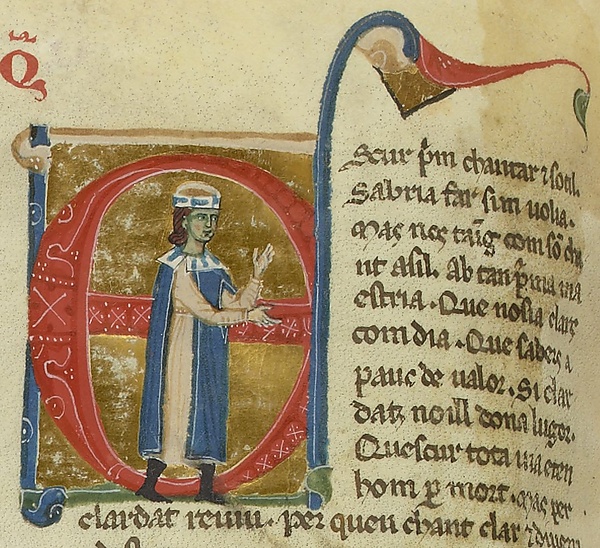 Q̃
EScur p̃m chantar ⁊ sotil.
Sabria far sim uolia.
Mas nos tãig com sõ cha
nt afil. Ab tan p̃ma ma
estria. Que nosia clars
com dia. Que sabers a
pauc de ualor. Si clar
datz noill dona lugor.
Quescur tota uia eten
hom ꝑ mort. mas per
clardat reuiu. per queu chant clar ⁊